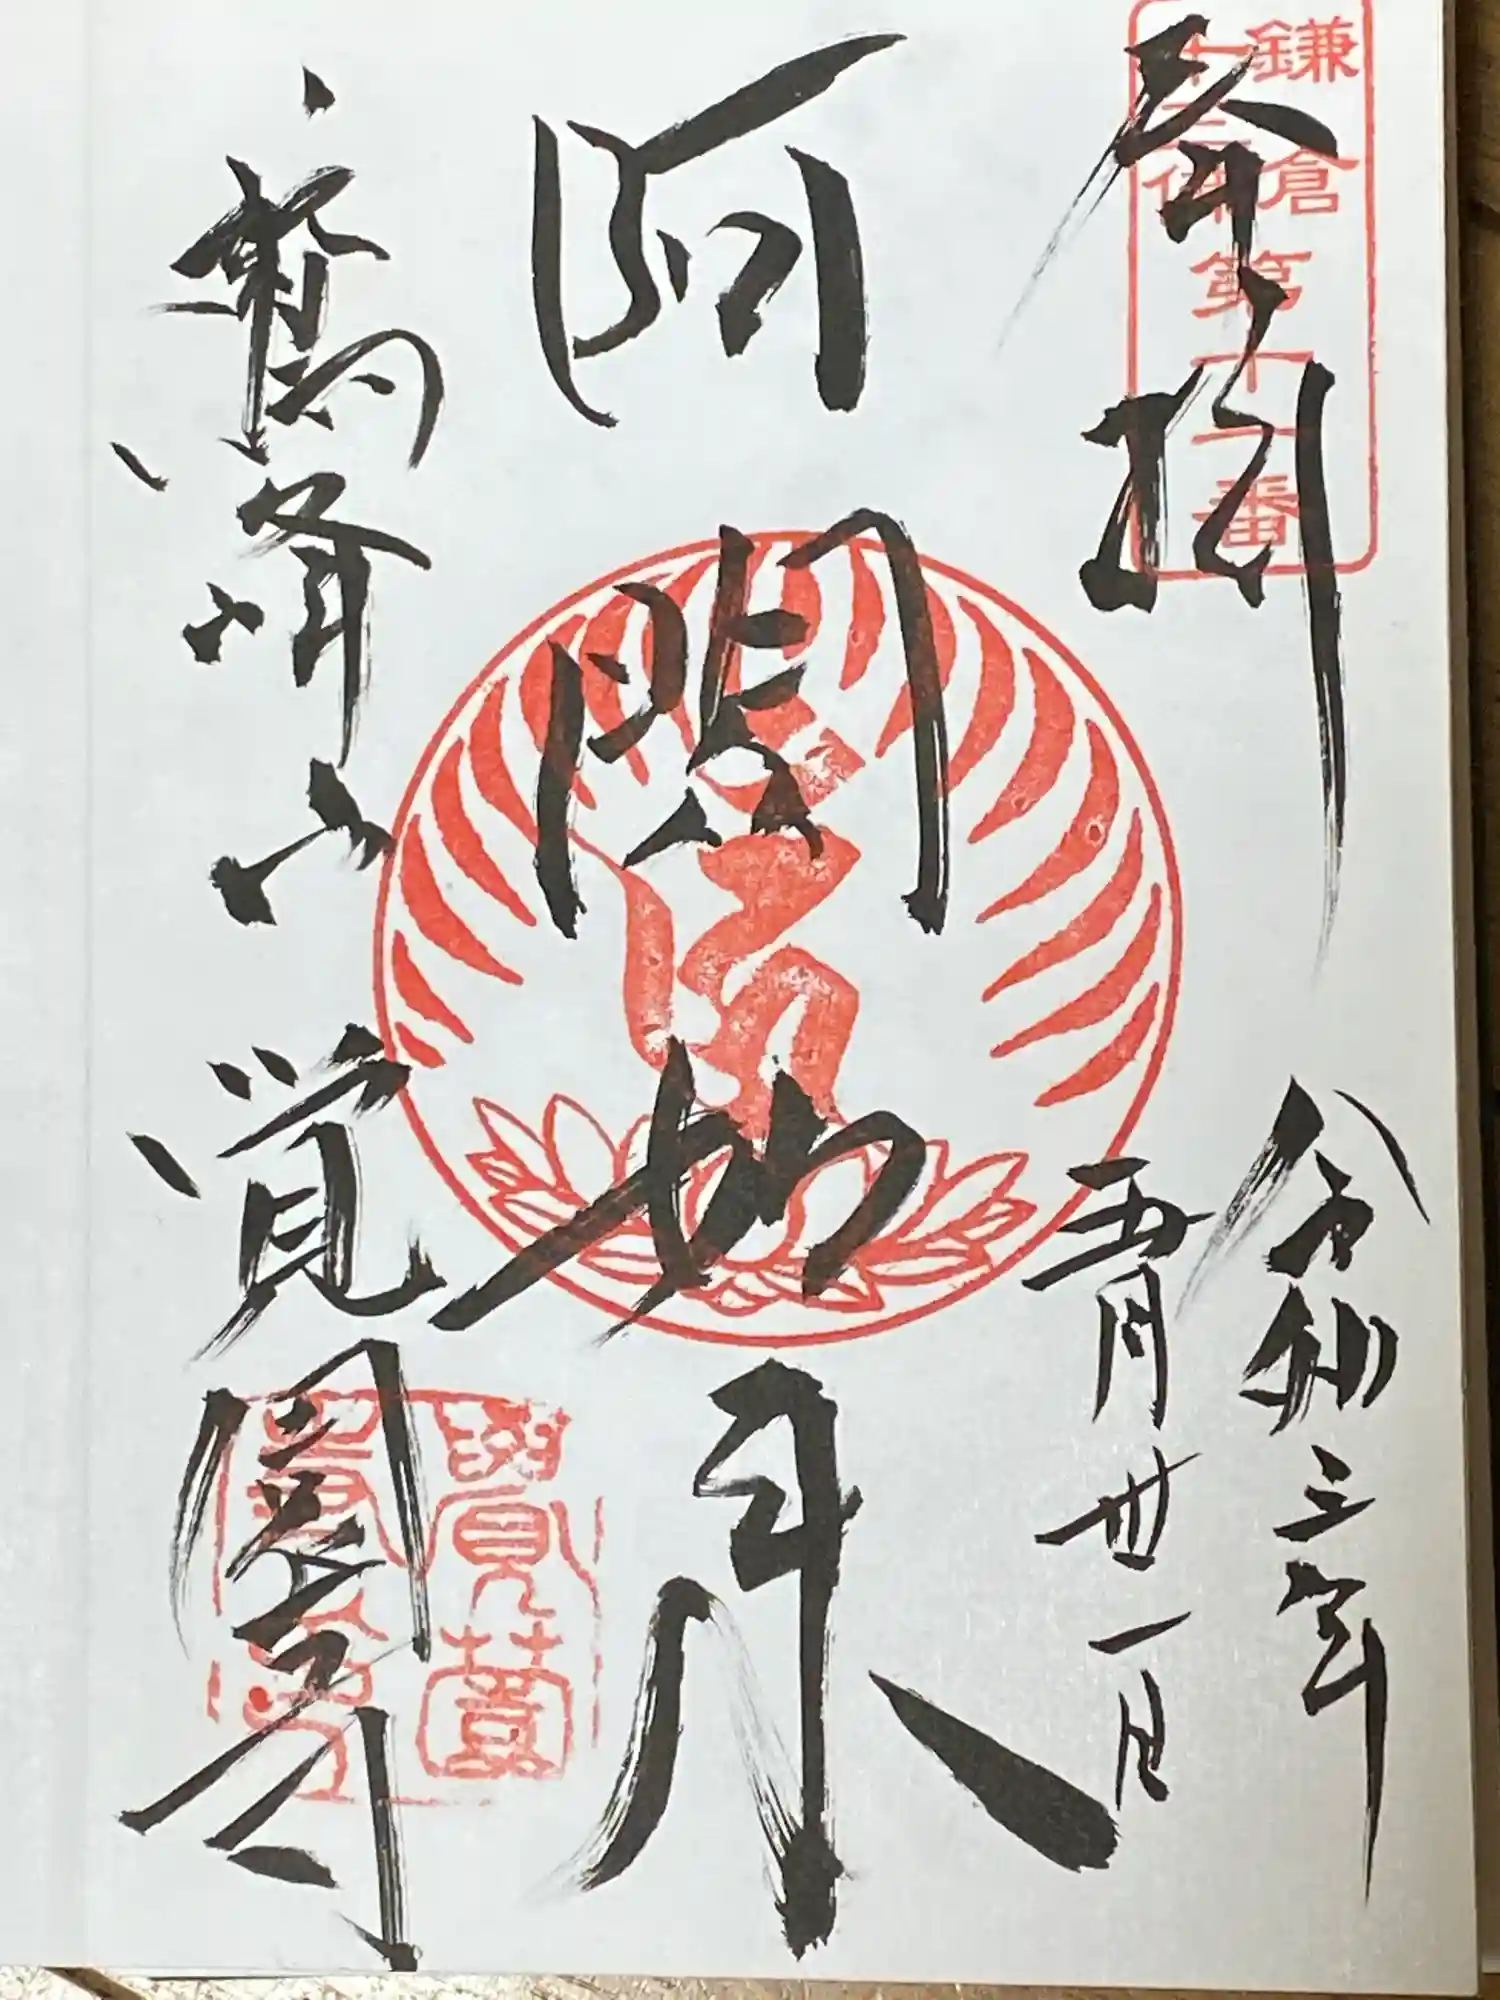 鎌倉
十三佛
第十一番
奉拝
令和三年
五月廿一日
阿閦如来
鷲峰山覚園寺
覺園